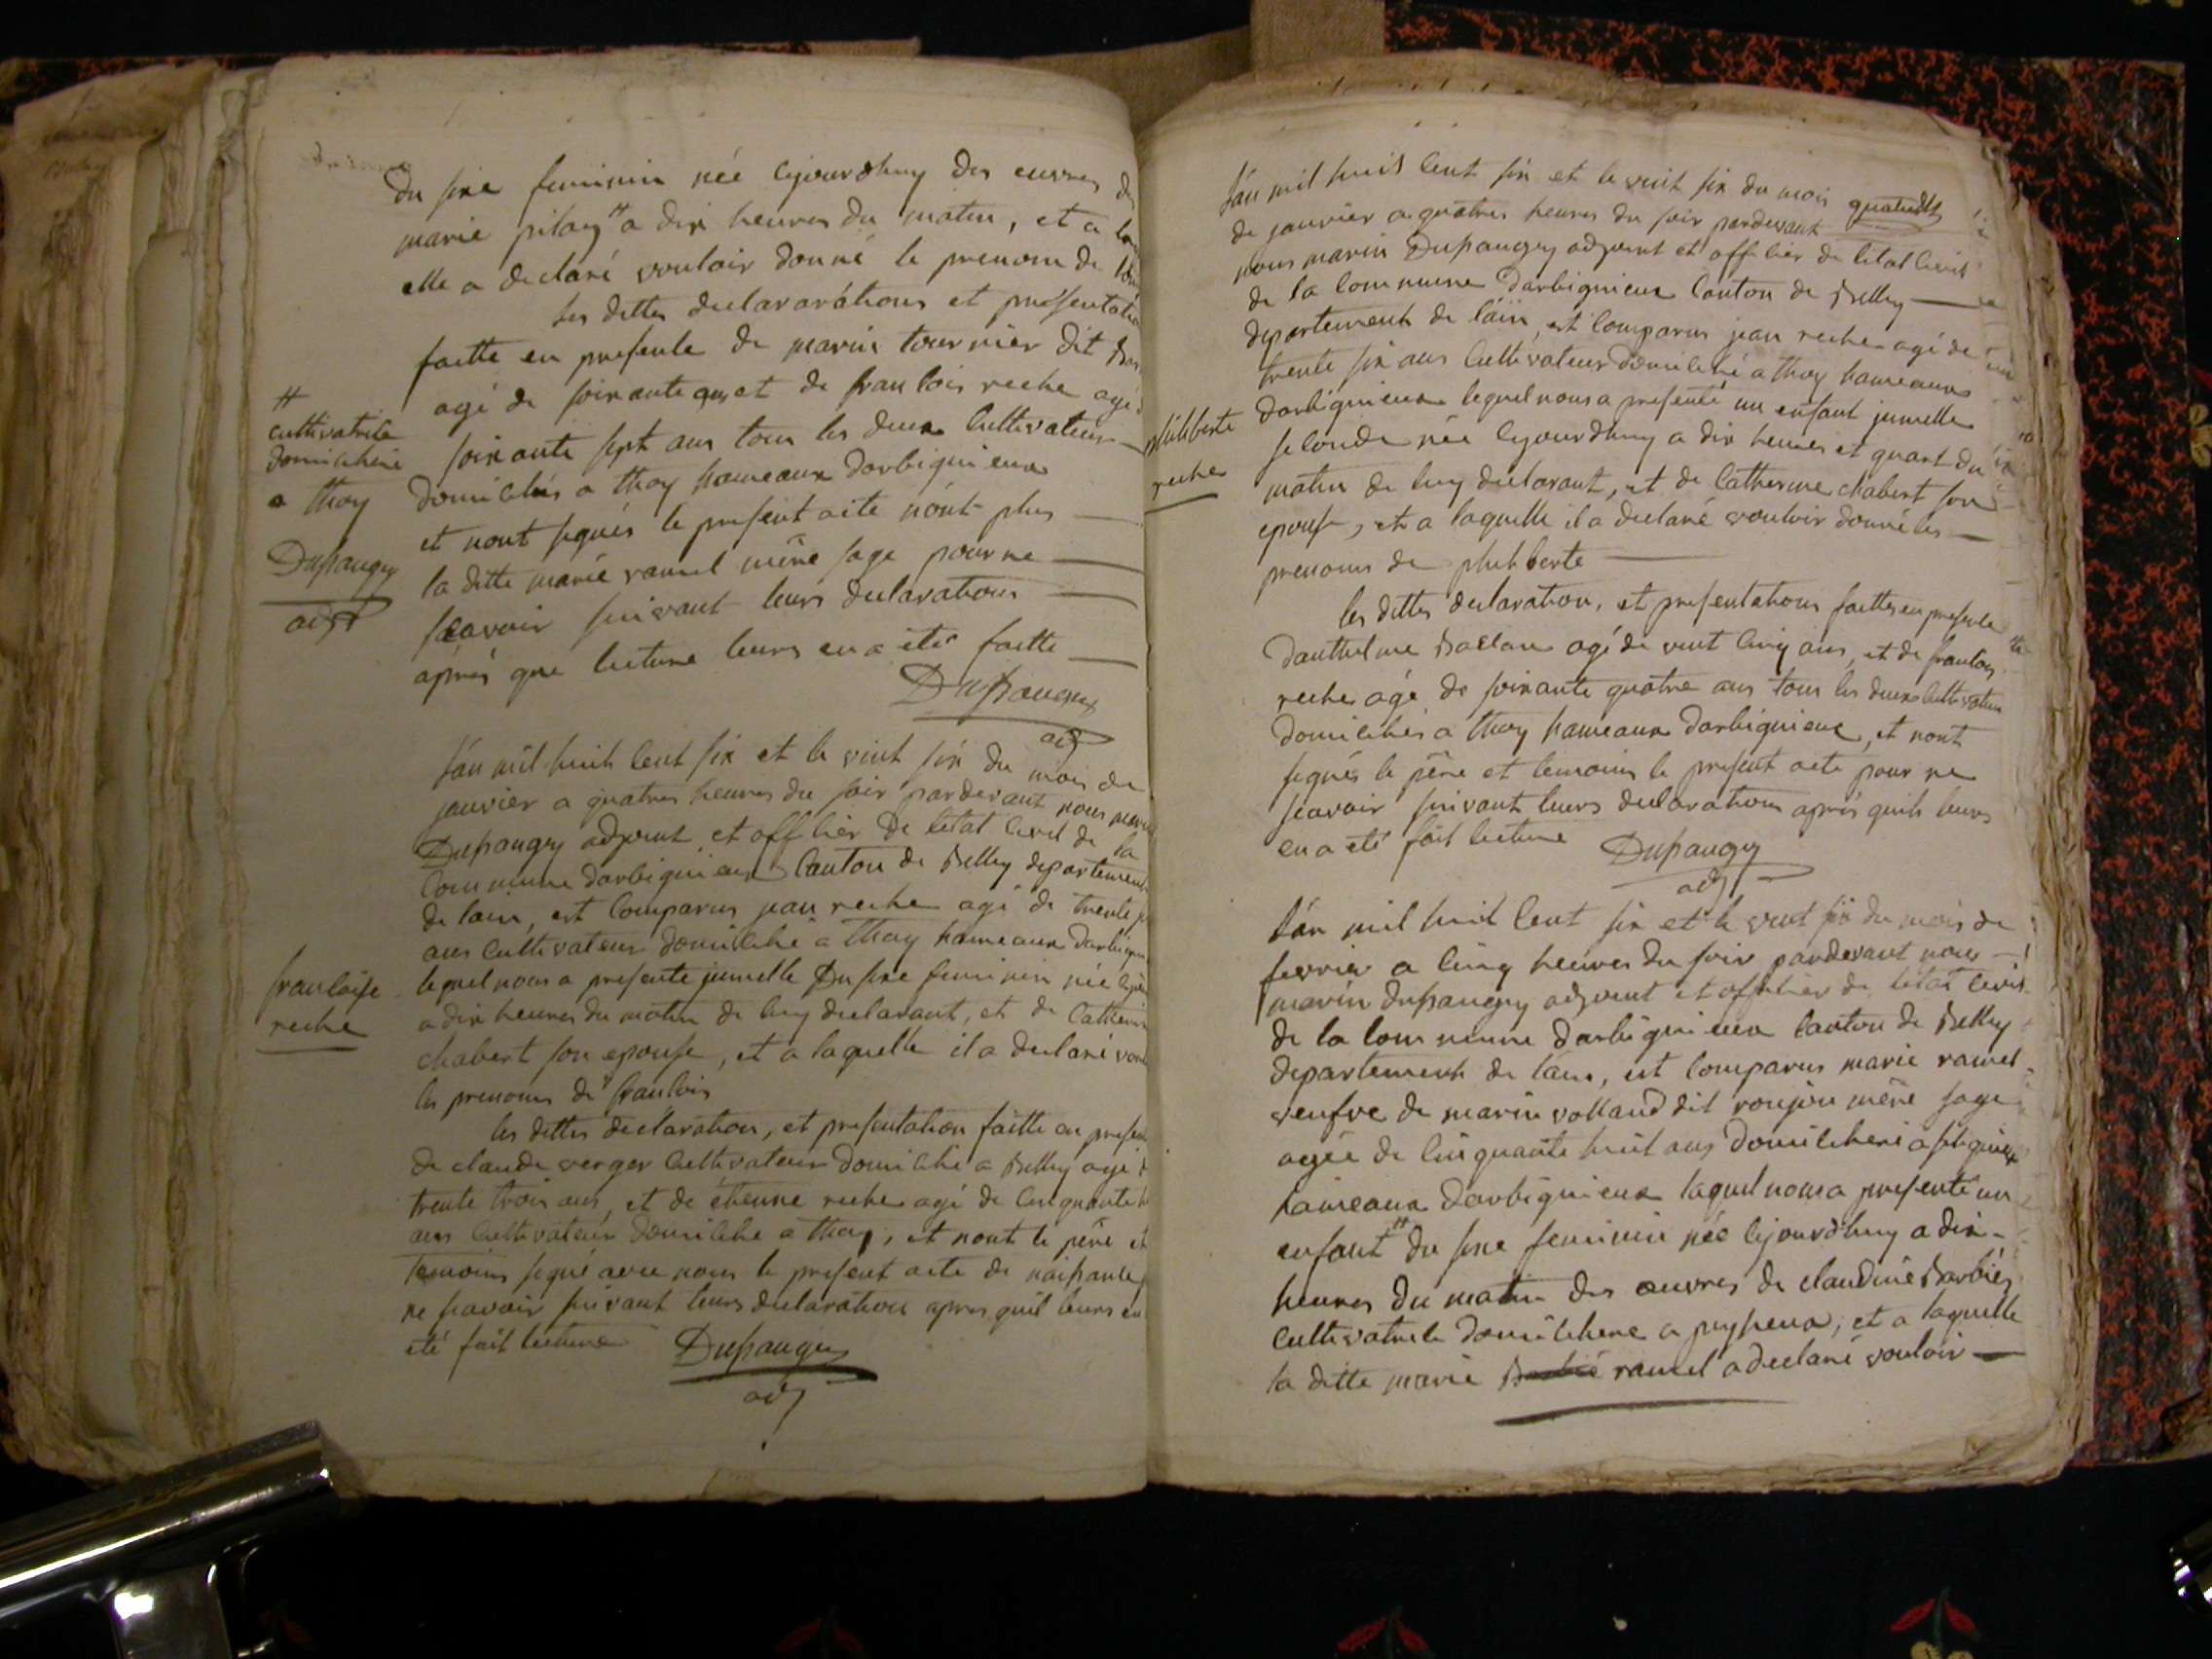 du sexe feminin née cejourdhuy des œuvres de
marie pilay # a dix heures du matin, et a
elle a declaré vouloir donné le prenom de
les dittes declararátions et présentatio
faitte en presence de marin tournier dit
agé de soixante ans et de francois reche agé
soixante sept ans tous les deux cultivateur
domiciliés a thoy hameaux darbignieux
et nont signés le present acte nónt plus
la ditte marie ramel mère sage pour ne
scavoir suivant leurs declarations
aprés que lecture leurs en a eté faitte
Dupaugey
adj
#
cultivatrice
domiciliere
a thoy
Dupaugey
adjt
Ján mil huit cent six et le vint six du mois de
janvier a quatres heures du soir pardevant nous
Dupaugey adjoint et officier de létat civil de la
commune darbignieux canton de Belley departement
de lain, est comparus jean reche agé de trente
ans cultivateur domicilié a thoy hameaux
lequel nous a presente jumelle du sexe feminin née
a dix heures du matin de luy declarant, et de Catherine
chabert son epouse, et a laquelle il a declaré
les prenoms de francois
francoise
reche
les dittes declaration, et presentation faitte en
de claude verger cultivateur domicilié a Belley agé
trente trois ans, et de étienne reche agé de cinquante
ans cultivateur domicilie a thoy, et nont le père et
temoins signé avec nous le present acte de naissance
ne scavoir suivant leurs declaration apres quil leurs en
eté fait lecture
Dupaugey
adj
Ján mil huit cent six et le vint six du mois
de janvier a quatres heures du soir pardevant
nous marin Dupaugey adjoint et officier de létat civil
de la commune darbignieux canton de Belley
departement de láin, est comparus jean reche agé de
trente six ans cultivateur domicilié a thoy hameaux
darbignieux lequel nous a presenté un enfant jumelle
seconde née cejourdhuy a dix heures et quart du
matin de luy declarant, et de Catherine chabert son
epouse, et a laquelle il a declaré vouloir donné les
prenoms de philiberte
philiberte
reche
les dittes declaration, et presentations faittes en presence
danthelme agé de vint cinq ans, et de francois
reche agé de soixante quatre ans tous les deux cultivateur
domiciliés a thoy hameaux darbignieux, et nont
signés le père et temoins le present acte pour ne
scavoir suivant leurs declarations après quils leurs
en a eté fait lecture
Dupaugey
adj
Lán mil huit cent six et le vint six du mois de
fevrier a cinq heures du soir pardevant nous
marin dupaugey adjoint et officier de létat civil
de la commune darbignieux canton de Belley
departement de láin, est comparus marie ramel
veufve de marin volland dit roujou mère sage
agée de cinquante huit ans domiciliere a
hameaux darbignieux laquel nous a presenté un
enfant # du sexe feminin née cejourdhuy a dix
heures du matin des œuvres de claudine Barbier
cultivatrice domiciliere a peyzieux, et a laquelle
la ditte marie ramel a declaré vouloir